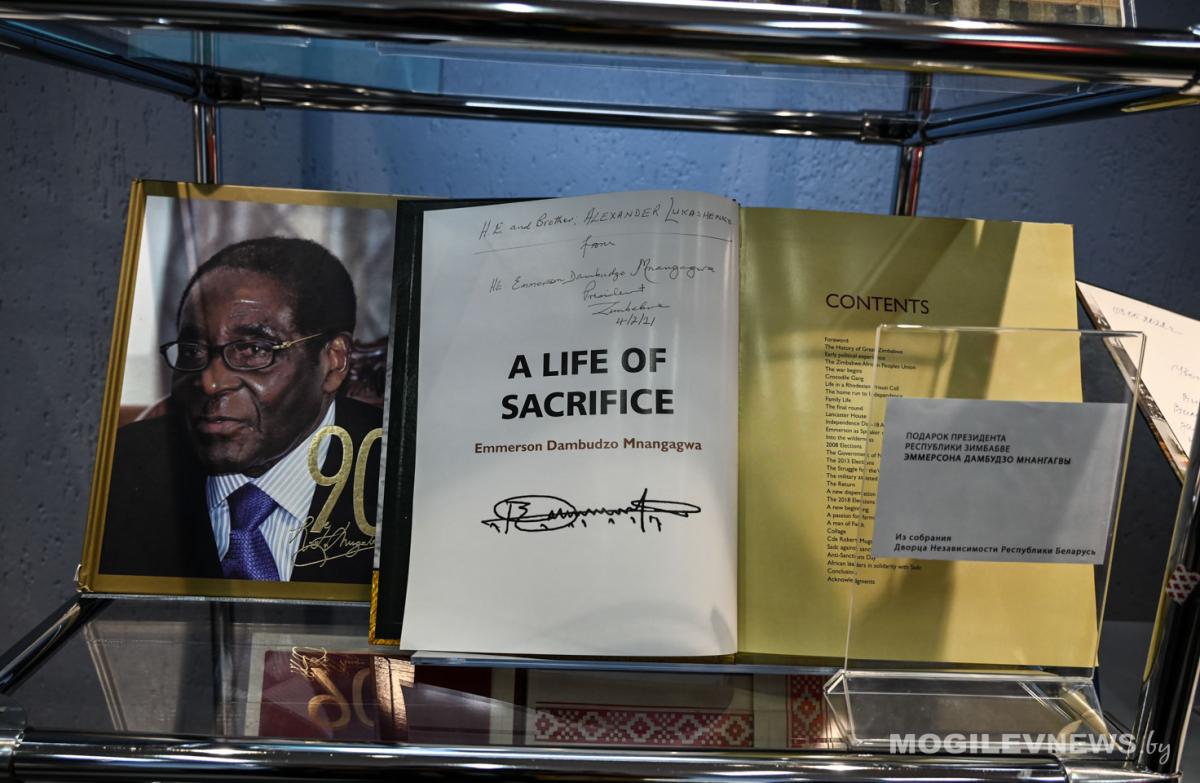 90
H.E and Brother, ALEXANDER LUKASHENKO
from
HE Emmerson Dambudzo Mnangagwa
President
Zimbabwe
4/2/21
A LIFE OF
SACRIFICE
Emmerson Dambudzo Mnangagwa
CONTENTS
Foreword
The History of Great Zimbabwe
Early political experience
The Zimbabwe African Peoples Union
The war begins
Crocodile Gang
Life in a Rhodesian Prison Cell
The home run to Independence
Family Life
The final round
Lancaster House
Independence Day-18 A
Emmerson as Speaker
Into the wilderness
2008 Elections
The Government of N
The 2013 Elections
The Struggle for the
The military assisted
The Return
A new dispensation
The 2018 Elections
A new beginning
A passion for farm
A man of Faith
Collage
Cde Robert Mug
Sadc against sanc
Anti-Sanctions Day
African leaders in solidarity with Sadc
Conclusion
Acknowledgments
ПОДАРОК ПРЕЗИДЕНТА
РЕСПУБЛИКИ ЗИМБАБВЕ
ЭММЕРСОНА ДАМБУДЗО МНАНГАГВЫ
Из собрания
Дворца Независимости Республики Беларусь
MOGILEVNEWS.by